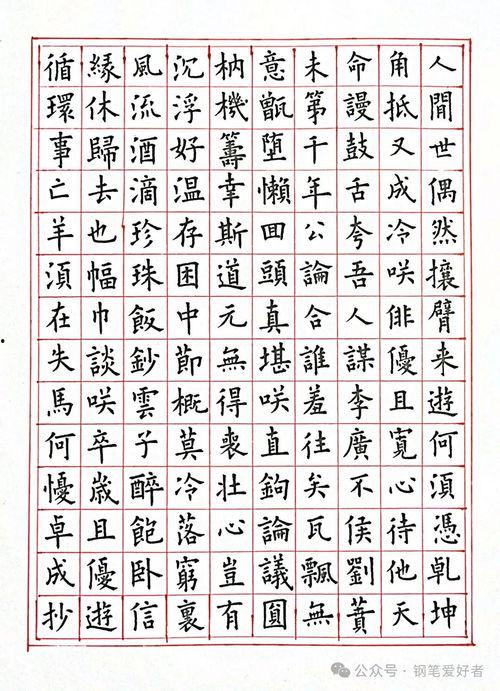 人間世偶然攘臂来遊何須憑乹坤
角抵又成冷咲俳優且寬心待他天
命謾鼓舌夸吾人謀李廣不侯劉蕡
未第千年公論合誰羞往矣瓦飄無
意甑堕懶囬頭真堪咲直鉤論議圓
枘機籌幸斯道元無得喪壯心豈有
沉浮好温存困中節概莫冷落窮裏
風流酒滴珍珠飯鈔雲子醉飽卧信
緣休歸去也幅巾談咲卒歲且優遊
循環事亡羊須在失馬何懮卓成抄
公众号·钢笔爱好者